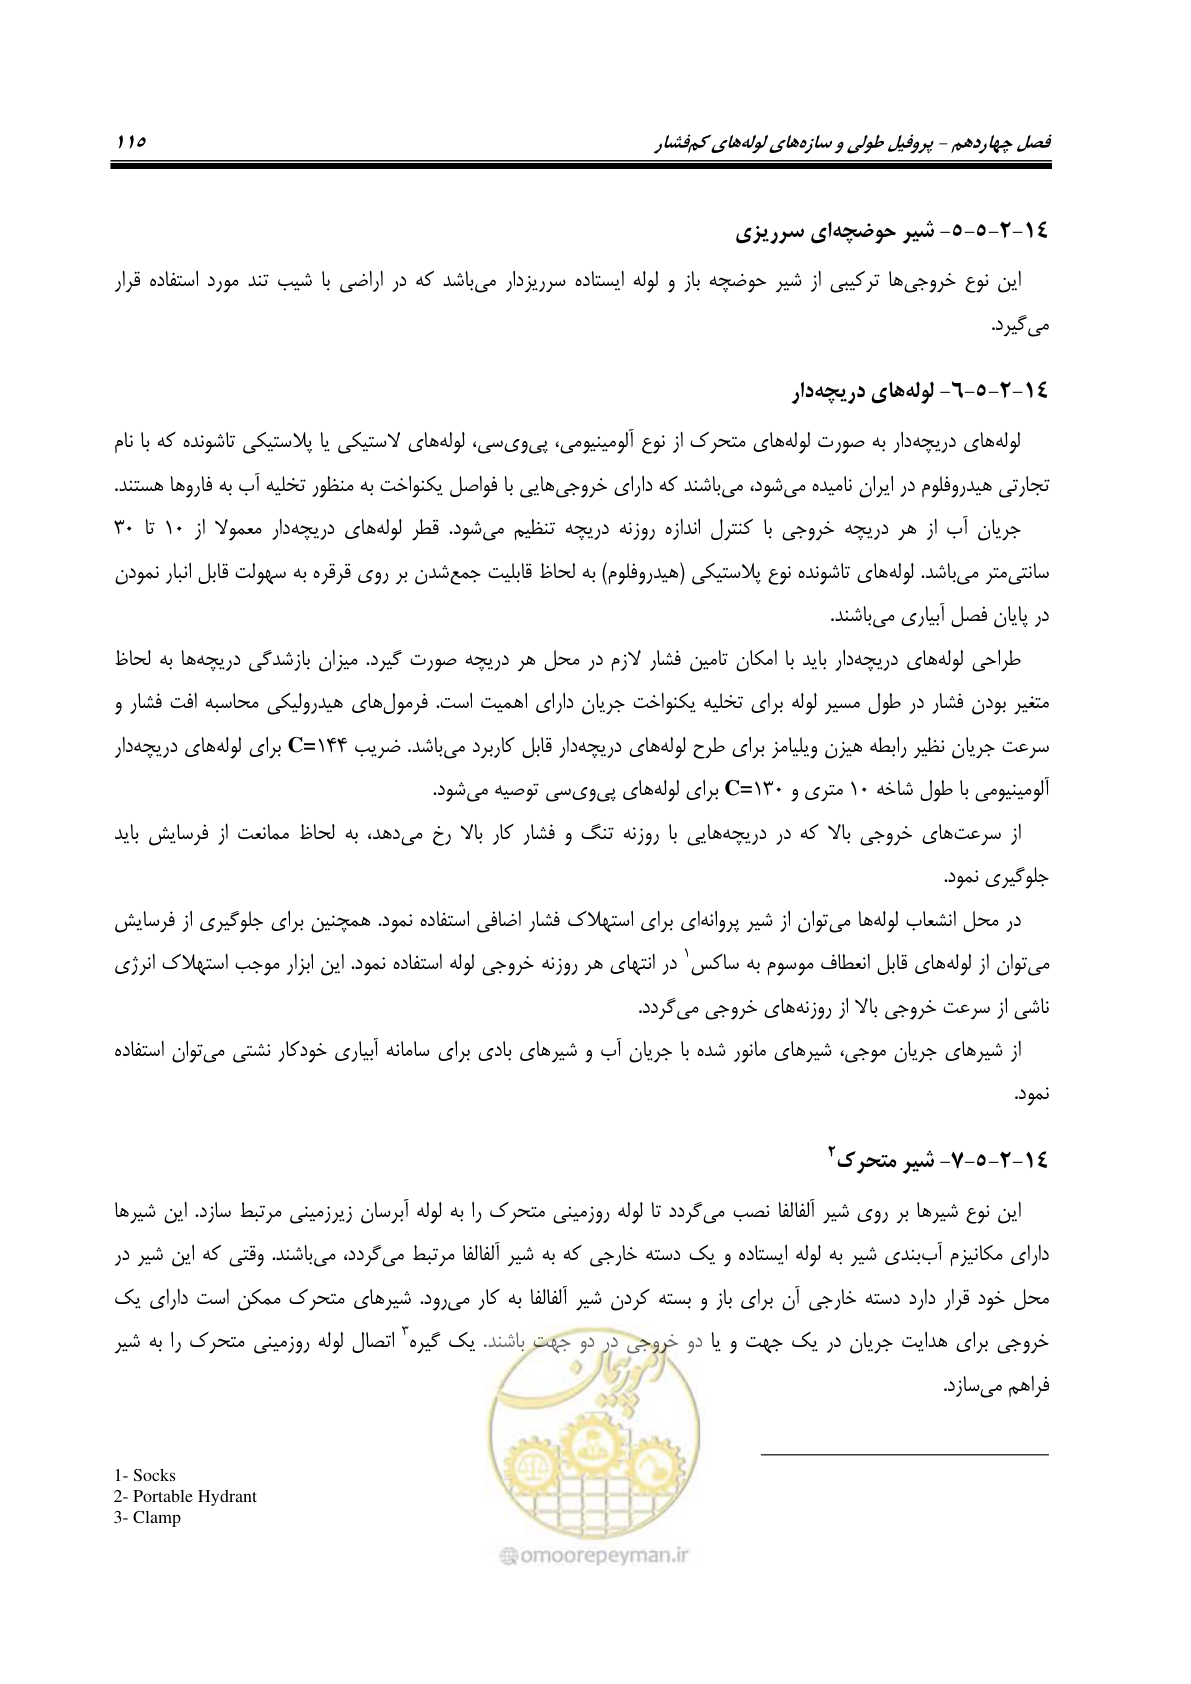 فصل چهاردهم - پروفیل طولی و سازه‌های لوله‌های کم‌فشار
۱۱۵
۱۴-۲-۵-۵- شیر حوضچه‌ای سرریزی
این نوع خروجی‌ها ترکیبی از شیر حوضچه باز و لوله ایستاده سرریزدار می‌باشد که در اراضی با شیب تند مورد استفاده قرار
می‌گیرد.
۱۴-۲-۵-۶- لوله‌های دریچه‌دار
لوله‌های دریچه‌دار به صورت لوله‌های متحرک از نوع آلومینیومی، پی‌وی‌سی، لوله‌های لاستیکی یا پلاستیکی تاشونده که با نام
تجارتی هیدروفلوم در ایران نامیده می‌شود، می‌باشند که دارای خروجی‌هایی با فواصل یکنواخت به منظور تخلیه آب به فاروها هستند.
جریان آب از هر دریچه خروجی با کنترل اندازه روزنه دریچه تنظیم می‌شود. قطر لوله‌های دریچه‌دار معمولا از ۱۰ تا ۳۰
سانتی‌متر می‌باشد. لوله‌های تاشونده نوع پلاستیکی (هیدروفلوم) به لحاظ قابلیت جمع‌شدن بر روی قرقره به سهولت قابل انبار نمودن
در پایان فصل آبیاری می‌باشند.
طراحی لوله‌های دریچه‌دار باید با امکان تامین فشار لازم در محل هر دریچه صورت گیرد. میزان بازشدگی دریچه‌ها به لحاظ
متغیر بودن فشار در طول مسیر لوله برای تخلیه یکنواخت جریان دارای اهمیت است. فرمول‌های هیدرولیکی محاسبه افت فشار و
سرعت جریان نظیر رابطه هیزن ویلیامز برای طرح لوله‌های دریچه‌دار قابل کاربرد می‌باشد. ضریب C=۱۴۴ برای لوله‌های دریچه‌دار
آلومینیومی با طول شاخه ۱۰ متری و C=۱۳۰ برای لوله‌های پی‌وی‌سی توصیه می‌شود.
از سرعت‌های خروجی بالا که در دریچه‌هایی با روزنه تنگ و فشار کار بالا رخ می‌دهد، به لحاظ ممانعت از فرسایش باید
جلوگیری نمود.
در محل انشعاب لوله‌ها می‌توان از شیر پروانه‌ای برای استهلاک فشار اضافی استفاده نمود. همچنین برای جلوگیری از فرسایش
می‌توان از لوله‌های قابل انعطاف موسوم به ساکس۱ در انتهای هر روزنه خروجی لوله استفاده نمود. این ابزار موجب استهلاک انرژی
ناشی از سرعت خروجی بالا از روزنه‌های خروجی می‌گردد.
از شیرهای جریان موجی، شیرهای مانور شده با جریان آب و شیرهای بادی برای سامانه آبیاری خودکار نشتی می‌توان استفاده
نمود.
۱۴-۲-۵-۷- شیر متحرک۲
این نوع شیرها بر روی شیر آلفالفا نصب می‌گردد تا لوله روزمینی متحرک را به لوله آبرسان زیرزمینی مرتبط سازد. این شیرها
دارای مکانیزم آب‌بندی شیر به لوله ایستاده و یک دسته خارجی که به شیر آلفالفا مرتبط می‌گردد، می‌باشند. وقتی که این شیر در
محل خود قرار دارد دسته خارجی آن برای باز و بسته کردن شیر آلفالفا به کار می‌رود. شیرهای متحرک ممکن است دارای یک
خروجی برای هدایت جریان در یک جهت و یا دو خروجی در دو جهت باشند. یک گیره۳ اتصال لوله روزمینی متحرک را به شیر
فراهم می‌سازد.
امور پیمان
1- Socks
2- Portable Hydrant
3- Clamp
@omoorepeyman.ir